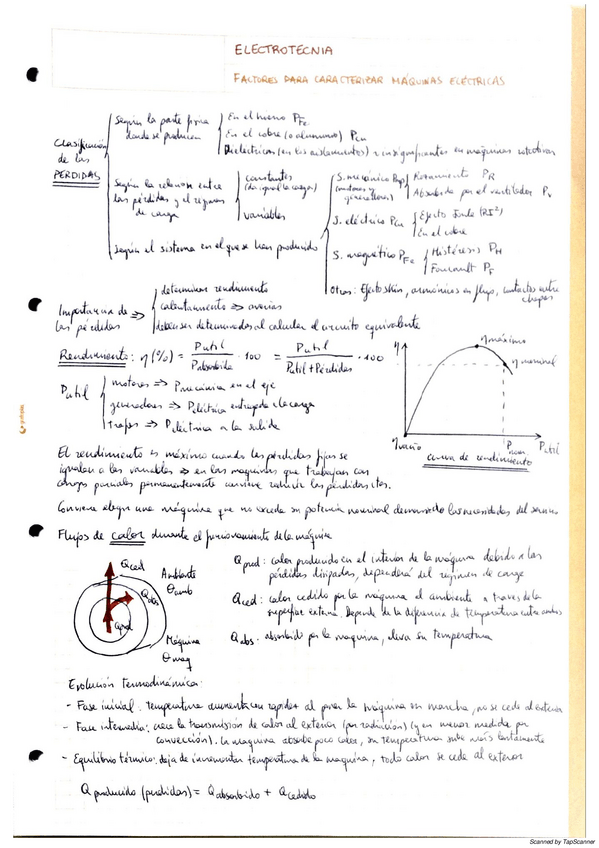 ELECTROTECNIA
FACTORES PARA CARACTERIZAR MÁQUINAS ELÉCTRICAS
Clasificación de las PÉRDIDAS
Según la parte física donde se producen
En el hierro P_Fe
En el cobre (o aluminio) P_cu
Dieléctricas (en los aislamientos) insignificantes en máquinas rotativas
Según la relación entre las pérdidas y el régimen de carga
constantes (da igual la carga)
variables
Según el sistema en el que se han producido
S. mecánico P_mp (motores y generadores)
Rozamiento P_R
Absorbida por el ventilador P_v
S. eléctrico P_cu
Efecto Joule (RI²)
En el cobre
S. magnético P_Fe
Histéresis P_H
Foucault P_F
Otros: Efecto Skin, armónicos en flujo, contactos entre chapas
Importancia de las pérdidas ⇒
determinar rendimiento
calentamiento ⇒ averías
deben ser determinados al calcular el circuito equivalente
Rendimiento: η(%) = Putil / Pabsorbida · 100 = Putil / Putil + Pérdidas · 100
Putil
motores ⇒ Pmecánica en el eje
generadores ⇒ Peléctrica entregada a la carga
trafos ⇒ Peléctrica a la salida
η
η máximo
η nominal
ηvacío
Pnom.
Putil
curva de rendimiento
El rendimiento es máximo cuando las pérdidas fijas se
igualan a las variables ⇒ en las máquinas que trabajan con
cargas parciales permanentemente conviene reducir las pérdidas ctes.
Conviene elegir una máquina que no exceda su potencia nominal demasiado las necesidades del servicio
Flujos de calor durante el funcionamiento de la máquina
Qced
Ambiente
θamb
Qabs
Qprod
Máquina
θmaq
Qprod: calor producido en el interior de la máquina debido a las
pérdidas disipadas, dependerá del régimen de carga
Qced: calor cedido por la máquina al ambiente a través de la
superficie externa. Depende de la diferencia de temperatura entre ambos
Qabs: absorbido por la máquina, eleva su temperatura
Evolución termodinámica:
- Fase inicial: temperatura aumenta con rapidez al poner la máquina en marcha, no se cede al exterior
- Fase intermedia: crece la transmisión de calor al exterior (por radiación) (y en menor medida por
convección). La máquina absorbe poco calor, su temperatura sube más lentamente
- Equilibrio térmico: deja de incrementar temperatura de la máquina, todo calor se cede al exterior
Qproducido (perdidas) = Qabsorbido + Qcedido
Scanned by TapScanner